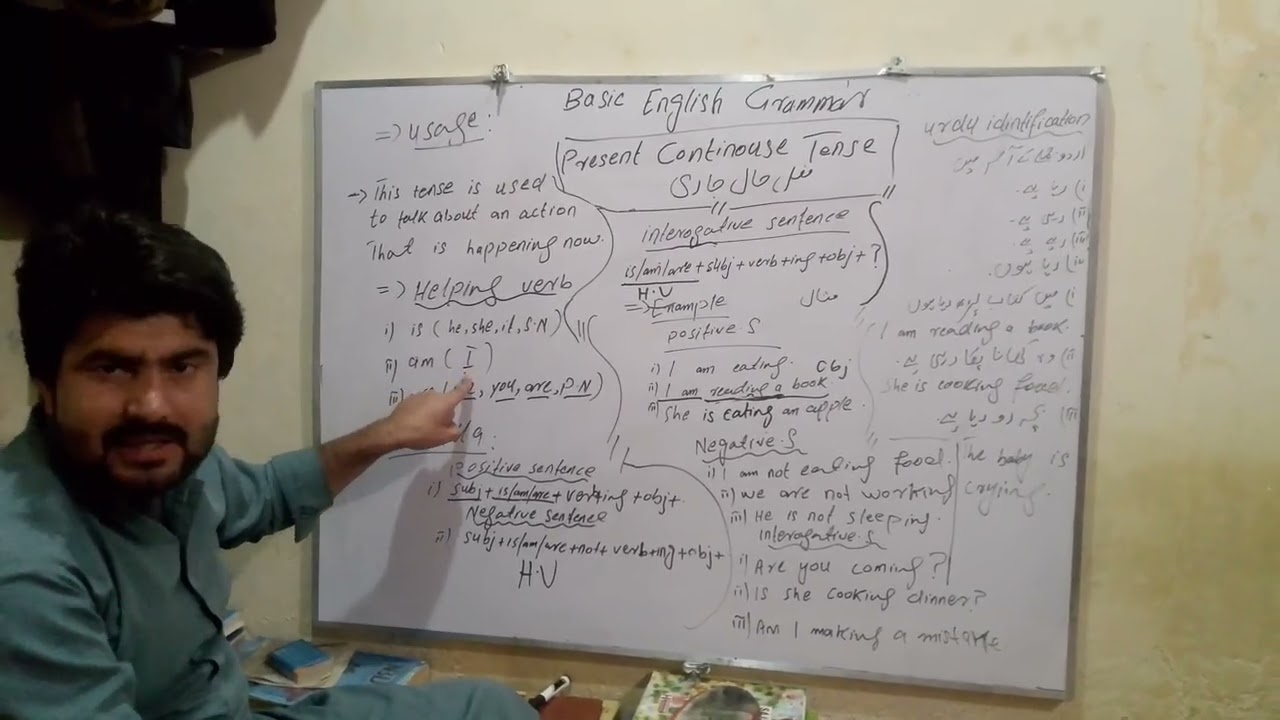 Basic English Grammar
Present Continouse Tense
فعل حال جاری
=> usage:
-> This tense is used
to talk about an action
That is happening now.
=> Helping verb
i) is (he, she, it, S.N)
ii) am (I)
you, are, P.N)
Positive sentence
i) subj + is/am/are + verb + ing + obj +
Negative sentence
ii) subj + is/am/are + not + verb + ing + obj +
H.V
interogative sentence
is/am/are + subj + verb + ing + obj + ?
H.V
=> Example مثال
positive S
i) I am eating. Obj
ii) I am reading a book.
iii) She is eating an apple.
Negative.S
i) I am not eating food.
ii) we are not working
iii) He is not sleeping.
interogative.S
i) Are you coming?
ii) Is she cooking dinner?
iii) Am I making a mistake
urdu idintification
i) رہا ہے۔
ii) رہی ہے۔
iii) رہے ہے۔
iv) رہا ہوں۔
i) میں کتاب پڑھ رہا ہوں
I am reading a book.
ii) وہ کھانا پکا رہی ہے۔
She is cooking food.
iii) بچہ رو رہا ہے
The baby is
crying.